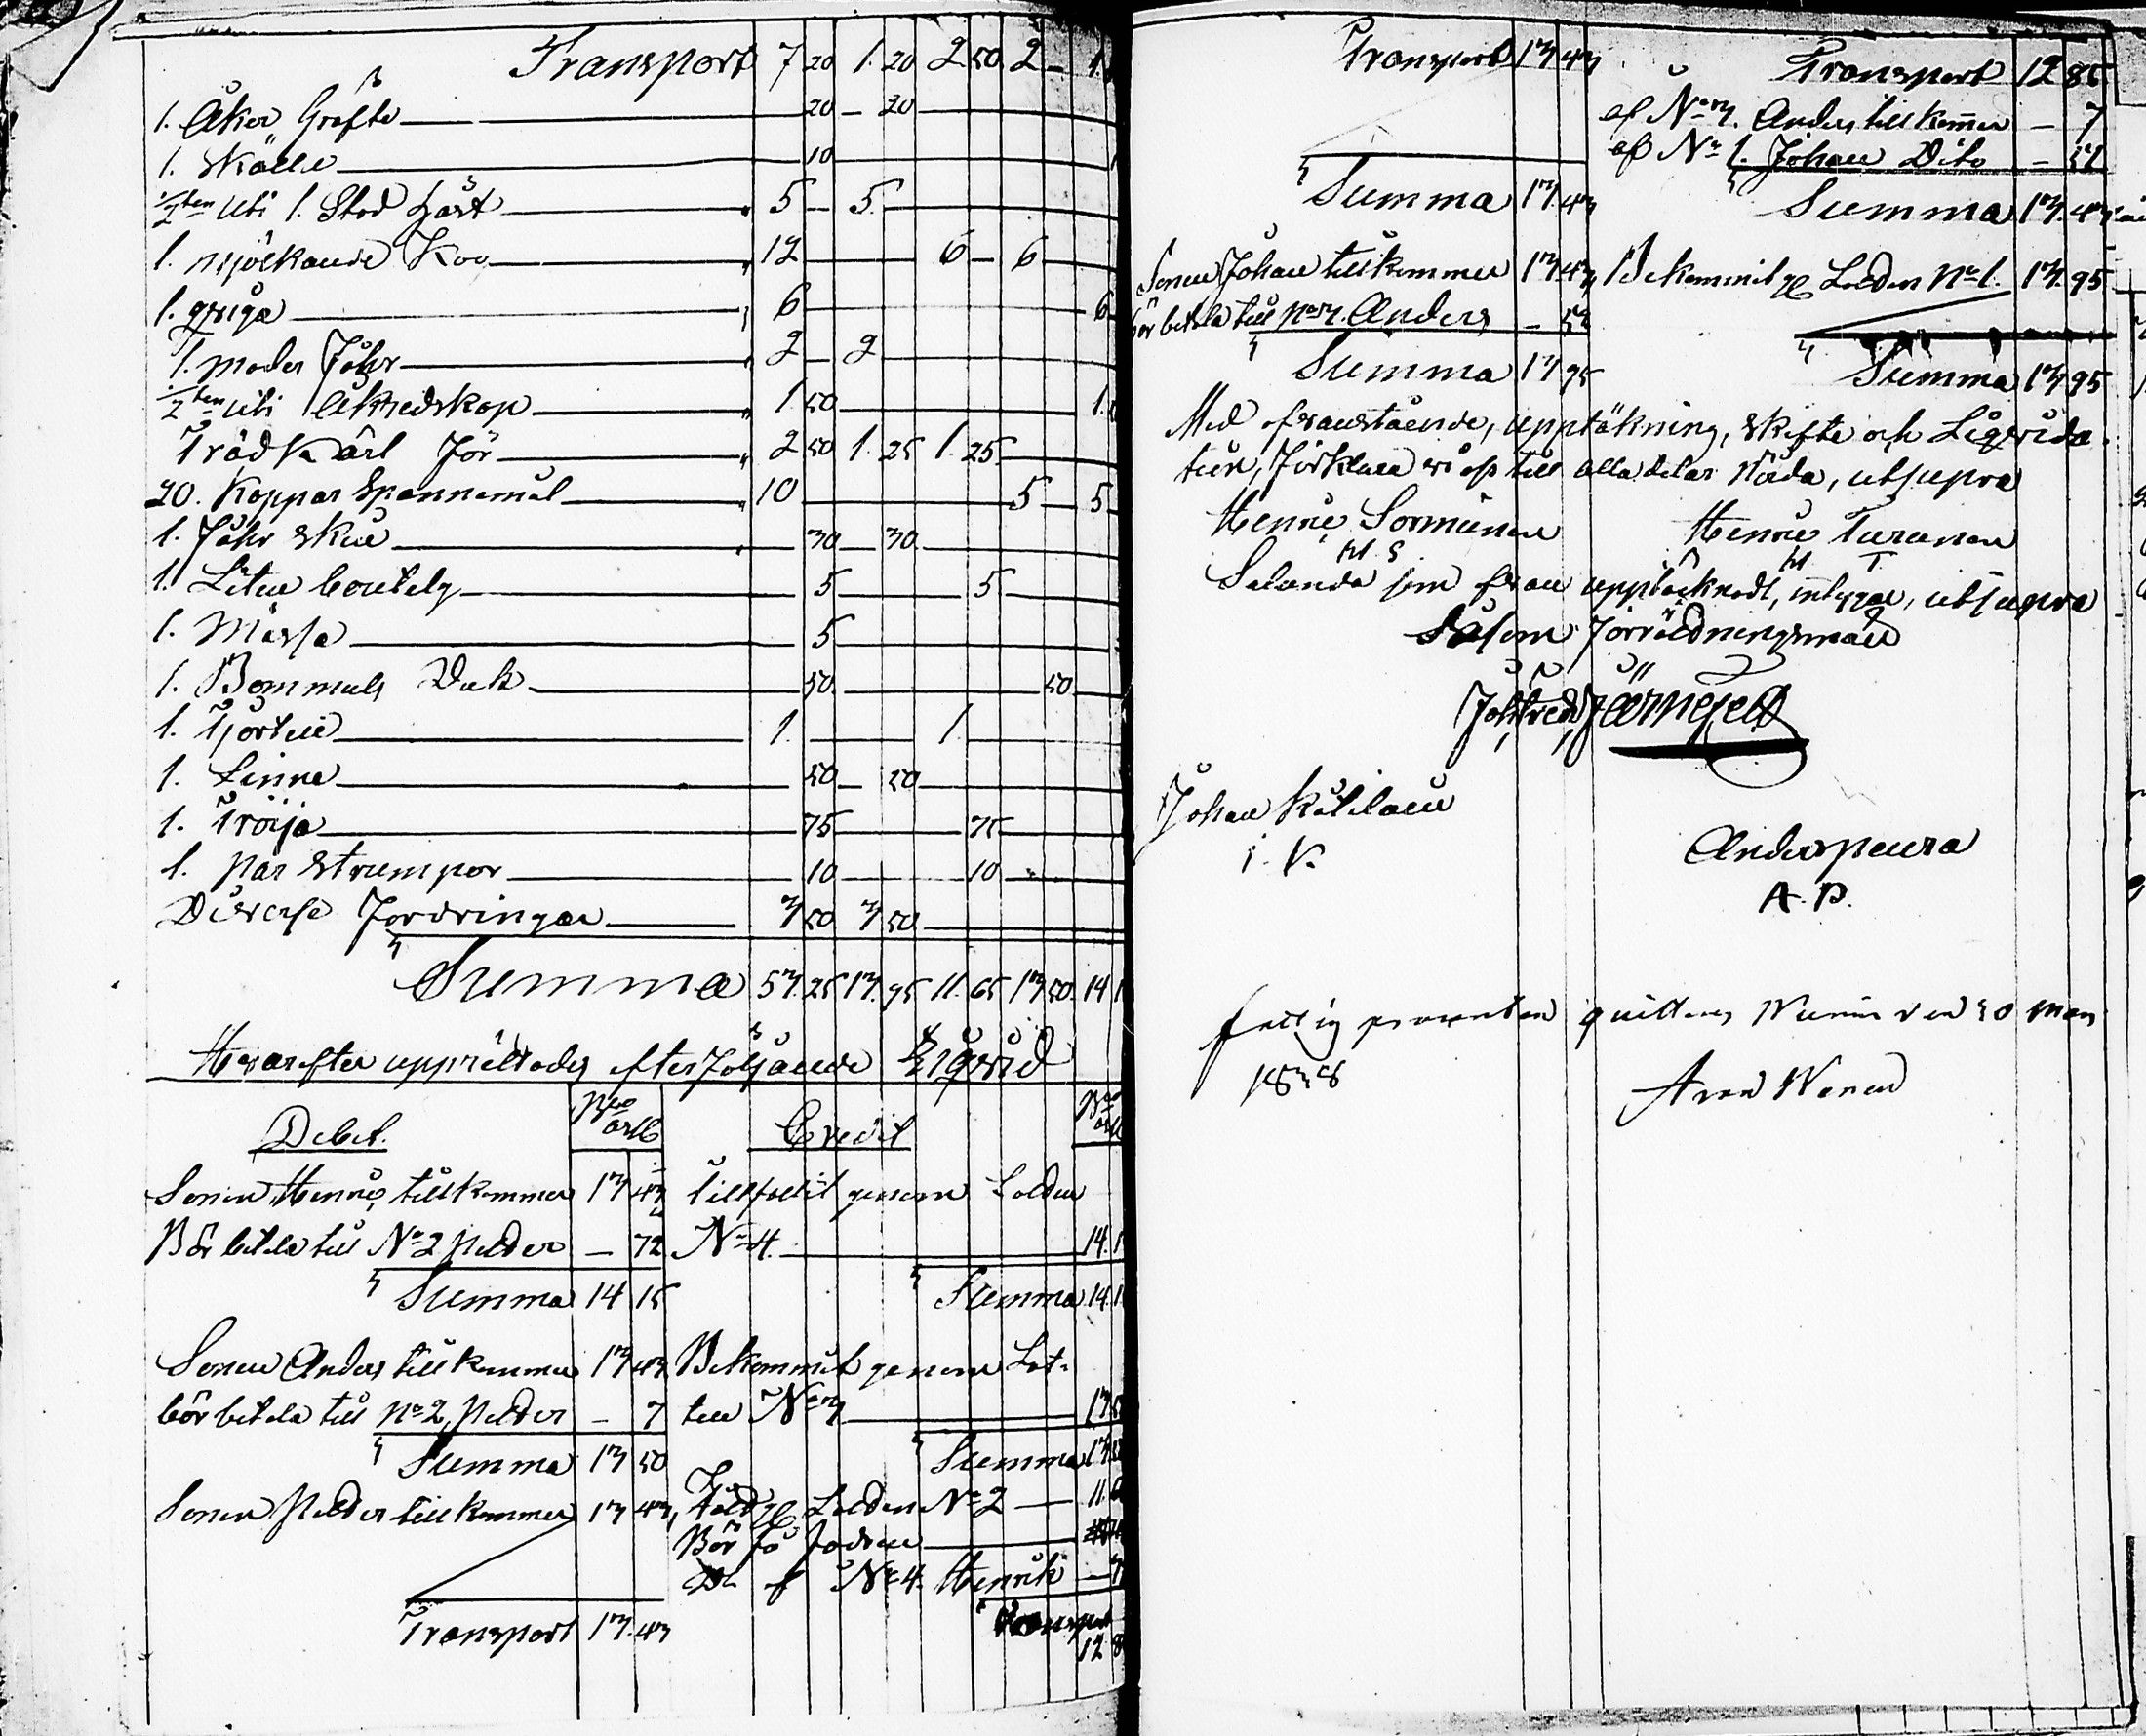 Transport 7 20 1. 20 2 50 2 – 1.
1. Åker Gräfta 20 – 20
1. Skälla 10
1/2ten uti 1. Stod Häst 5 – 5
1. mjölkande Koo 12 6 – 6
1. qviga 6 6
1. moder Fåhr 2 – 2
1/2ten uti Åkredskap 1 50 1.
Trädkärl för 2 50 1. 25 1. 25
20. Kappar Spannemål 10 5 – 5
1. Fåhr skin 30 – 30
1. Liten boutelg 5 5
1. Mässa 5
1. Bommuls Duk 50 50
1. Tjortell 1. 1.
1. Linne 50 – 50
1. Tröija 75 75
1. par Strumpor 10 10
Diverse Fordringar 3 50 3 50
Summa 53. 25 13. 95 11. 65 13 50. 14 1
Hvarefter upprättades efterföljande Liqvid
Debet. Bco Credit Bco
Sonen Henric tillkommer 13 43 Tillfallit genom Lotten
Bör betala till No 2 Petter – 72 No 4. 14. 1
Summa 14 15 Summa 14. 1
Sonen Anders tillkommer 13 43 Bekommit genom Lot-
bör betala till No 2, Petter – 7 ten No 3 13 5
Summa 13 50 Summa 13 5
Sonen Petter tillkommer 13 43, Lotten No 2 – 11. 6
Bör få
af No 4. Henrik – 7
Transport 13. 43 Transport
12 8
Transport 13 43 Transport 12 85
af No 3. Anders tillkommer – 7
af No 1. Johan Dito – 51
Summa 13. 43 Summa 13. 43
Sonen Johan tillkommer 13 43, Bekommit gm Lotten No 1. 13. 95
bör betala till No 3. Anders – 52
Summa 13 95 Summa 13 95
Med ofvanstående, upptäkning, skifte och Liqvida-
tion, förklara vi oss till alla delar nöida, utsupra
Henric Sormunen Henric Turunen
H S H T
Salunda som ofvan upptäcknadt, intygar, utsupra
Såsom förrättningsman
Joh: Fred: Järnefelt
Johan Kätilain
I. K.
Anders Peura
A. P.
fattig procenten quitteras den 30 Mars
1838